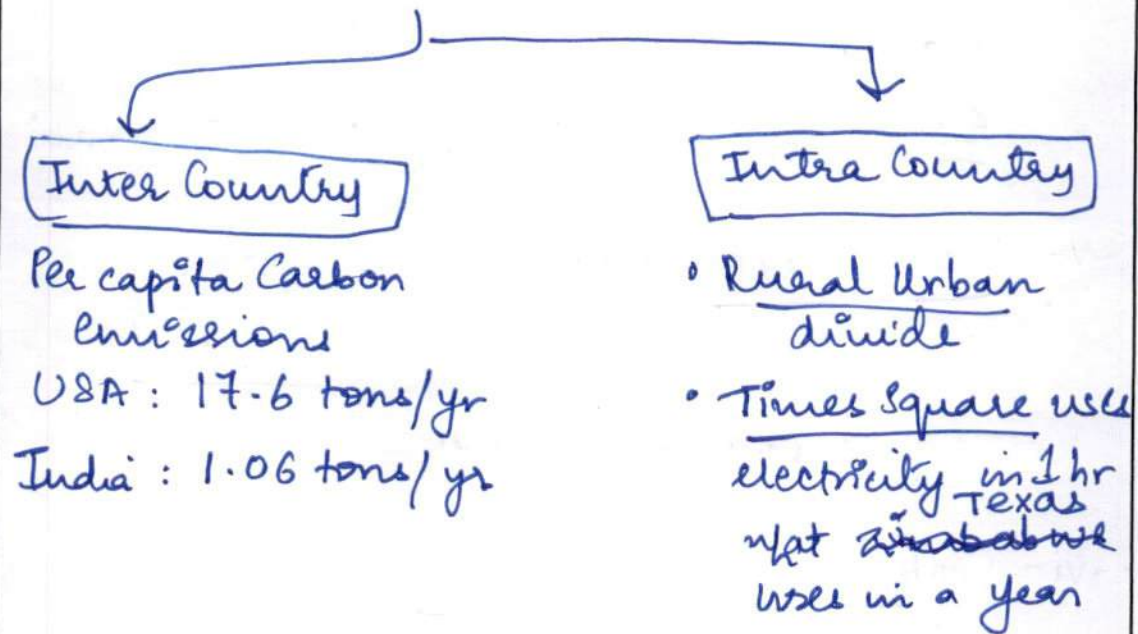 Inter Country
Per capita Carbon
emissions
USA : 17.6 tons/yr
India : 1.06 tons/yr
Intra Country
• Rural Urban
divide
• Times Square uses
electricity in 1 hr
Texas
what Zimbabwe
uses in a year